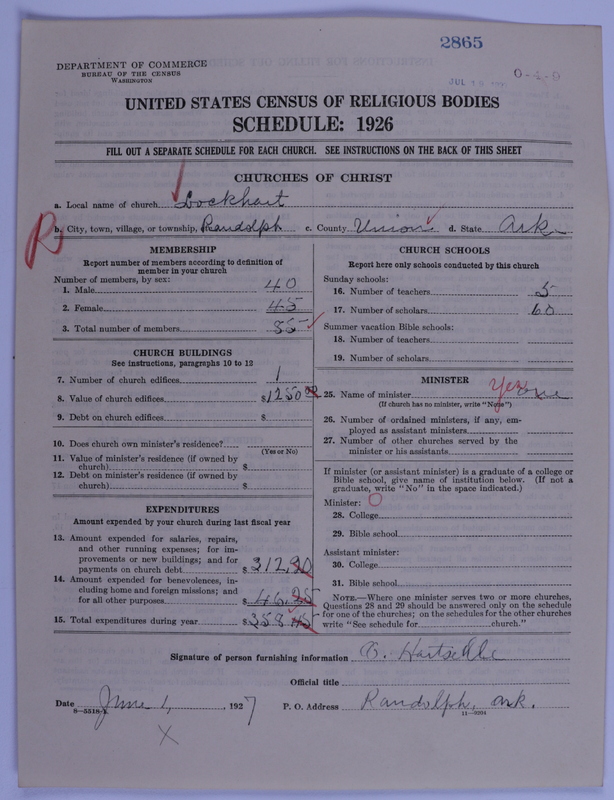 2865
DEPARTMENT OF COMMERCE
BUREAU OF THE CENSUS
WASHINGTON
JUL
0-4-0
UNITED STATES CENSUS OF RELIGIOUS BODIES
SCHEDULE: 1926
FILL OUT A SEPARATE SCHEDULE FOR EACH CHURCH. SEE INSTRUCTIONS ON THE BACK OF THIS SHEET
CHURCHES OF CHRIST
a. Local name of church Lockhart
R b. City, town, village, or township, Randolph c. County Union d. State Ark
MEMBERSHIP
Report number of members according to definition of
member in your church
Number of members, by sex:
1. Male 40
2. Female 45
3. Total number of members 85
CHURCH BUILDINGS
See instructions, paragraphs 10 to 12
7. Number of church edifices 1
8. Value of church edifices $1250 00
9. Debt on church edifices $
10. Does church own minister's residence?
(Yes or No)
11. Value of minister's residence (if owned by
church) $
12. Debt on minister's residence (if owned by
church) $
EXPENDITURES
Amount expended by your church during last fiscal year
13. Amount expended for salaries, repairs,
and other running expenses; for im-
provements or new buildings; and for
payments on church debt $ 312.20
14. Amount expended for benevolences, in-
cluding home and foreign missions; and
for all other purposes $ 46.25
15. Total expenditures during year $ 358.45
CHURCH SCHOOLS
Report here only schools conducted by this church
Sunday schools:
16. Number of teachers 5
17. Number of scholars 60
Summer vacation Bible schools:
18. Number of teachers
19. Number of scholars
MINISTER
25. Name of minister Yes
(If church has no minister, write "None")
26. Number of ordained ministers, if any, em-
ployed as assistant ministers
27. Number of other churches served by the
minister or his assistants
If minister (or assistant minister) is a graduate of a college or
Bible school, give name of institution below. (If not a
graduate, write "No" in the space indicated.)
Minister: O
28. College
29. Bible school
Assistant minister:
30. College
31. Bible school
NOTE.—Where one minister serves two or more churches,
Questions 28 and 29 should be answered only on the schedule
for one of the churches; on the schedules for the other churches
write "See schedule for church."
Signature of person furnishing information
Official title
Date June 1, 1927 P. O. Address Randolph, Ark.
8—5518
11—9204
X